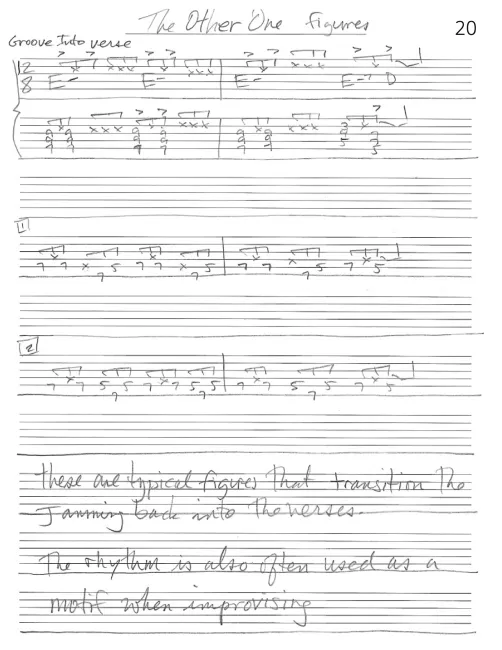 The Other One figures
20
Groove Into verse
12
8
E- E- E- E-7 D
1
7 7 7 5 7 7 7 5 7 7 5 7 5
7 7
2
7 7 5 5 7 7 5 5 7 7 5 5 7 5
7 7 7
these are typical figures That transition The
Jamming back into The verses.
The rhythm is also often used as a
motif when improvising